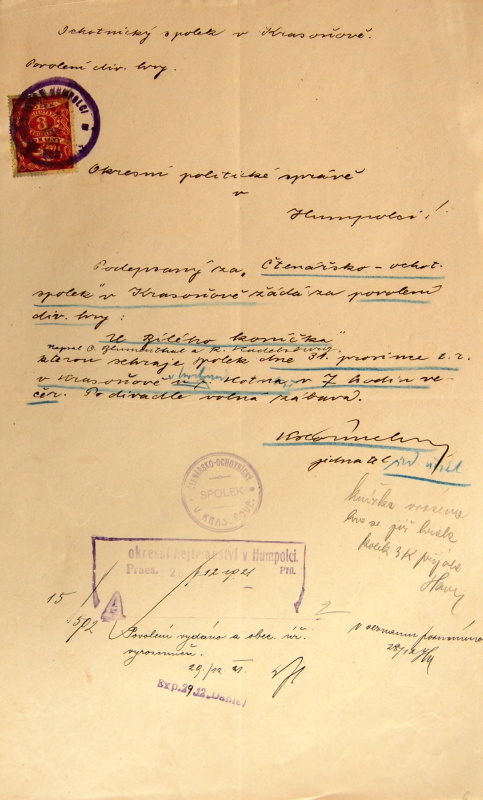 Ochotnický spolek v Krasoňově.
Povolení div. hry.
HUMPOLCI
3
Okresní politické správě
v
Humpolci!
Podepsaný za „Čtenářsko-ochot.
spolek" v Krasoňově žádá za povolení
div. hry:
„U Bílého koníčka"
Napsal O. Blumenthal a K. Kadelburg.
kterou sehraje spolek dne 31. prosince t. r.
v Krasoňově v hostinci p. Kotna, v 7 hodin ve-
čer. Po divadle volna zábava.
jednatel
ČTENÁŘSKO-OCHOTNICKÝ
SPOLEK
V KRASOŇOVĚ
Knížka vrácena
kolek 3 K
okresní hejtmanství v Humpolci.
Praes. 1921 Přl.
15
Povolení vydáno a obec. úř.
vyrozuměn.
29./12. 21.
28/12
Exp. 29.12.